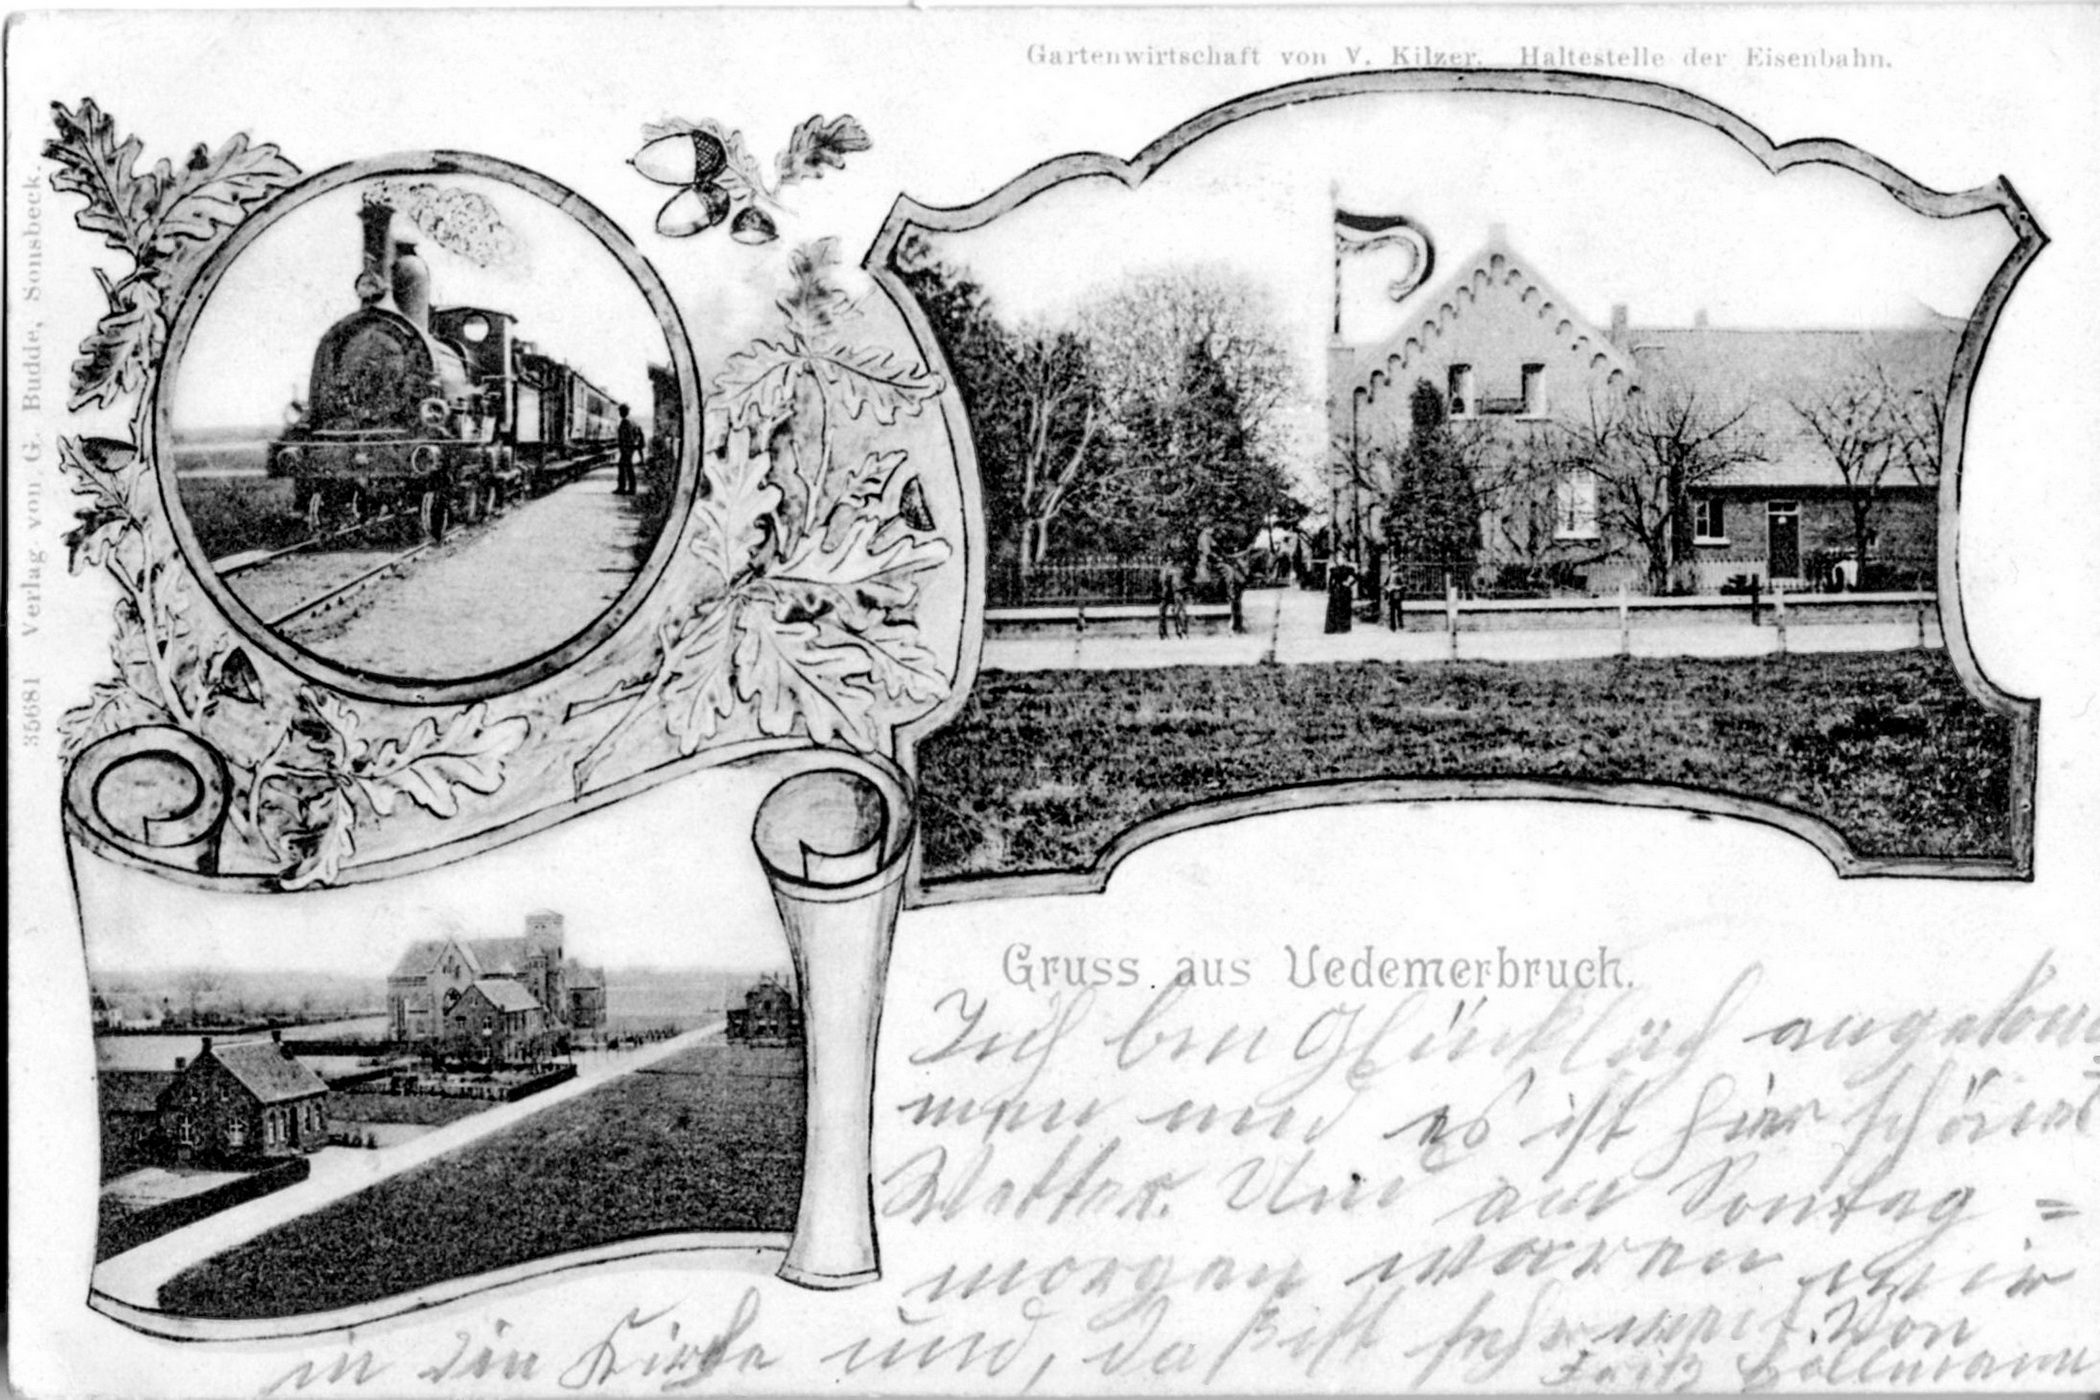 Gartenwirtschaft von V. Kilzer. Haltestelle der Eisenbahn.
35681 Verlag von G. Budde, Sonsbeck.
Gruss aus Uedemerbruch.
Ich bin Glücklich angekom
men und es ist hier schönes
Wetter. Und am Sontag =
morgen waren wir
in die Kirche und, da ist sehr weit. Von
Fritz Bollmann